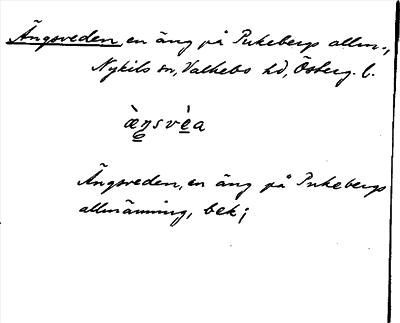 Ängsveden, en äng på Pukebergs allm.,
Nykils sn, Valkebo hd, Österg. l.
ὰŋsvὲa
Ängsveden, en äng på Pukebergs
allmänning, bek;